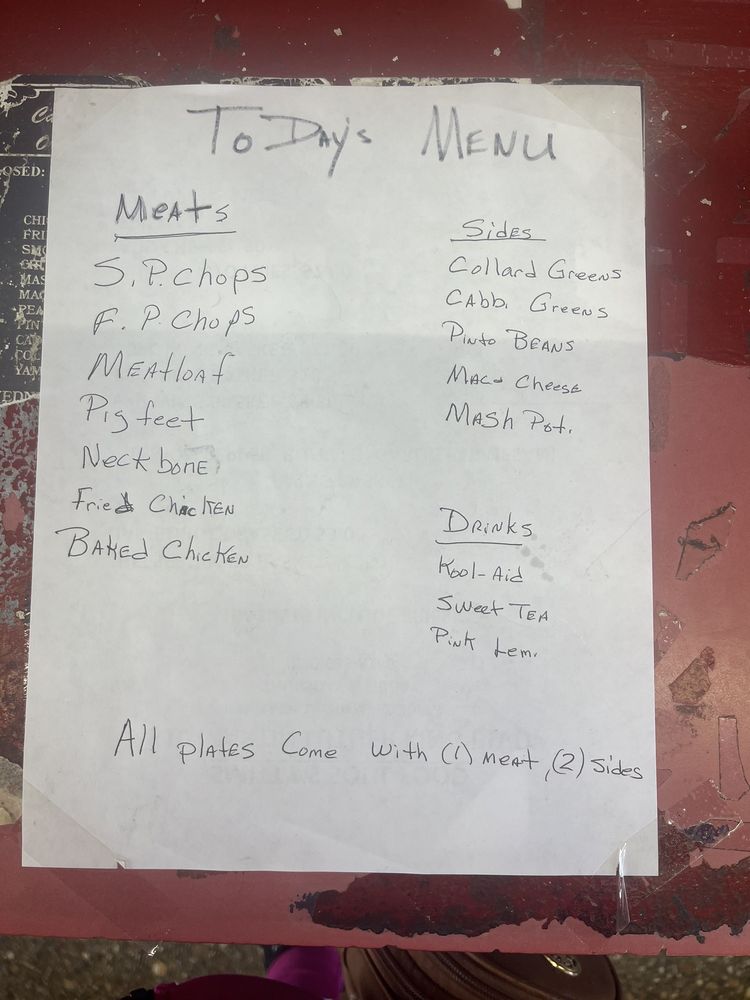 ToDay's MENU
Meats
S. P. Chops
F. P. Chops
Meatloaf
Pig feet
Neck bone
Fried Chicken
Baked Chicken
Sides
Collard Greens
Cabb. Greens
Pinto Beans
Mac & Cheese
Mash Pot.
Drinks
Kool-Aid
Sweet Tea
Pink Lem.
All plates Come with (1) meat, (2) sides
OSED:
CHI
FRI
SMO
MAS
MAC
PEA
PIN
COL
YAM